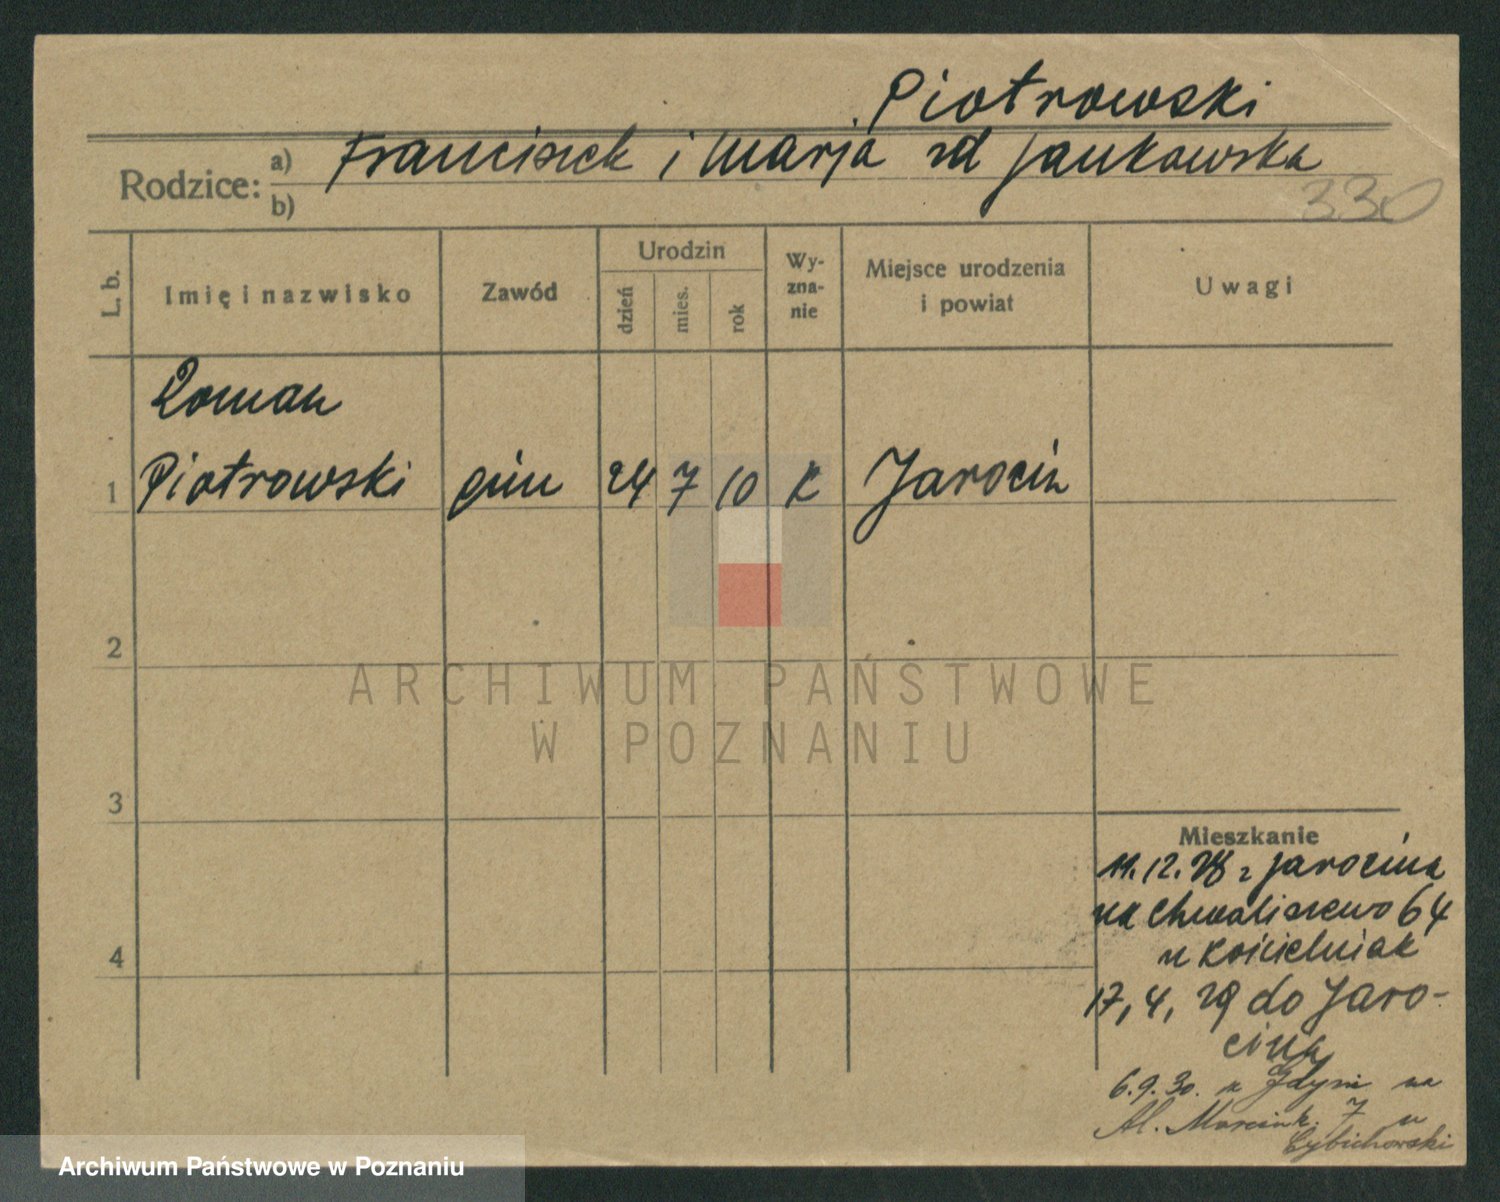 Piotrowski
Rodzice: a) Franciszek i Marja zd Jankowska
b)
330
L. b. Imię i nazwisko Zawód Urodzin dzień mies. rok Wy-zna-nie Miejsce urodzenia i powiat Uwagi
Roman
1 Piotrowski gim 24 7 10 K Jarocin
2
ARCHIWUM PAŃSTWOWE
W POZNANIU
3
4
Mieszkanie
11.12.28 z Jarocina
na Chwaliszewo 64
u Kościelniak
17,4,29 do Jaro-
cina
6.9.30. z Gdyni na
Al. Marcink. 7 u
Cybichowski
Archiwum Państwowe w Poznaniu